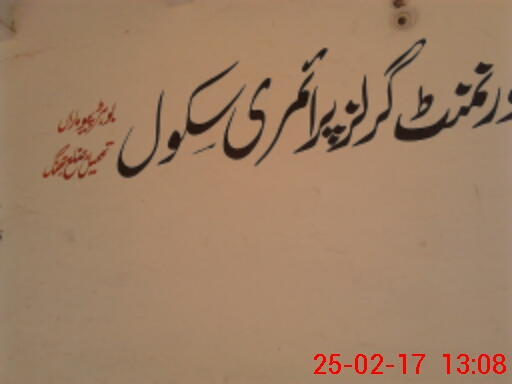 ورنمنٹ گرلز پرائمری سکول
تحصیل ضلع جھنگ
25-02-17 13:08